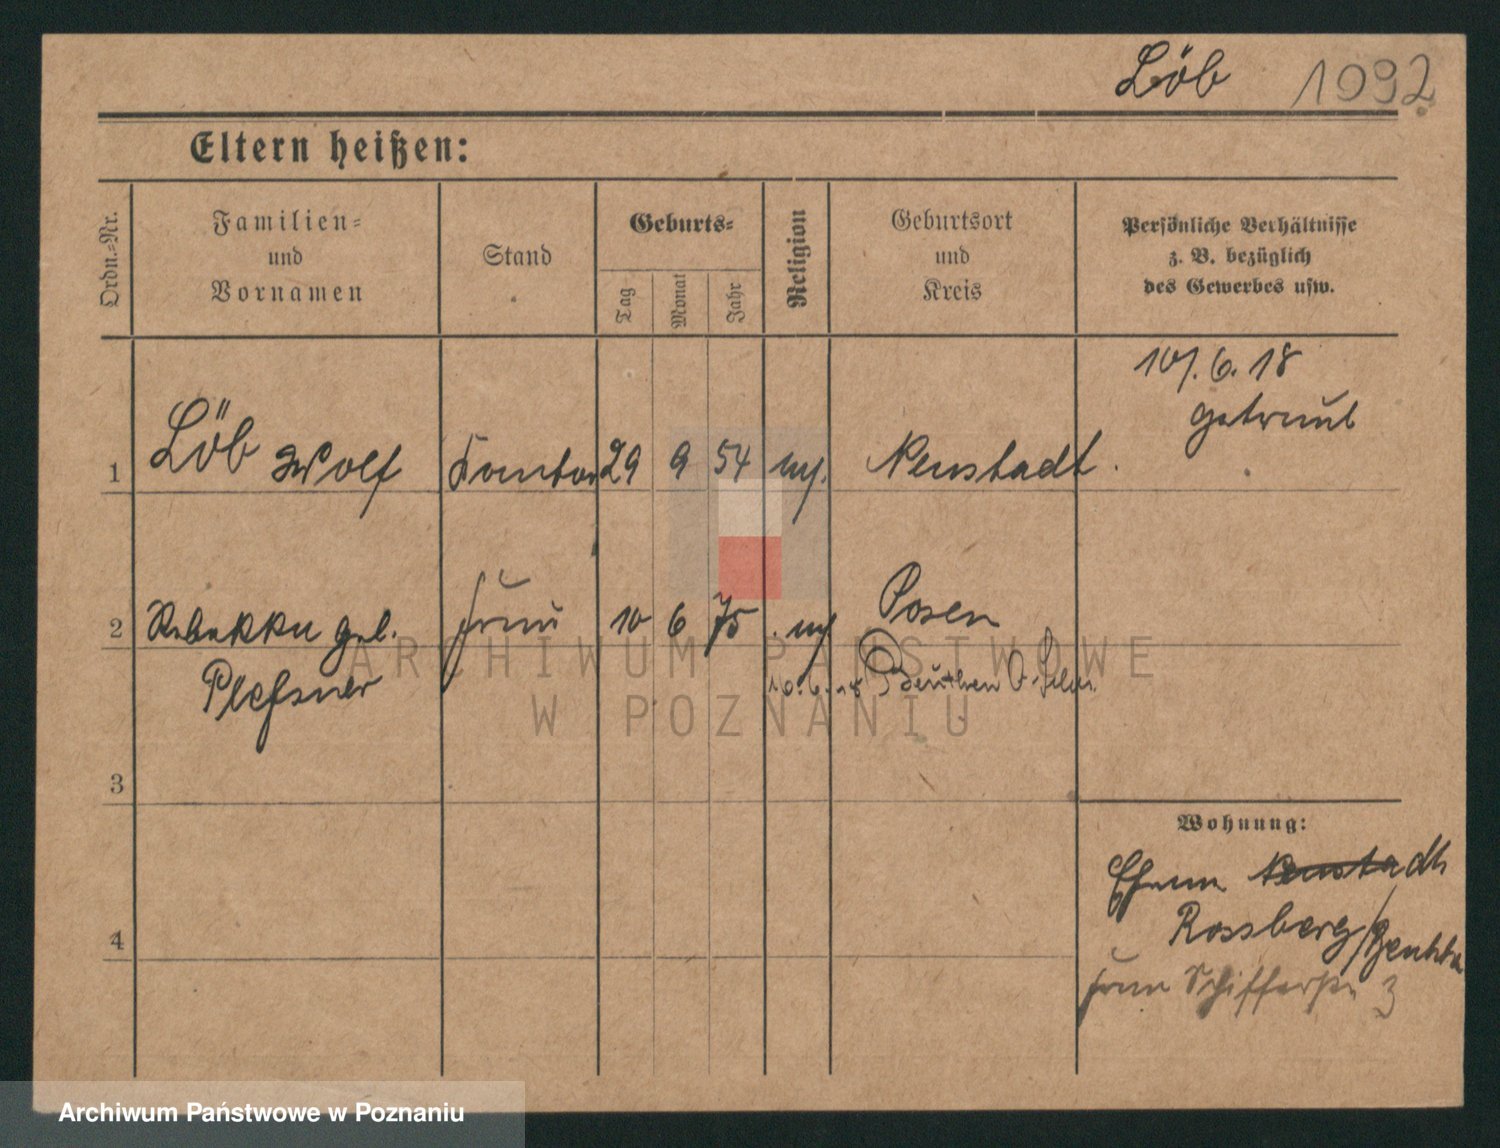 Löb 1092
Eltern heißen:
Ordn.-Nr.
Familien-
und
Vornamen
Stand
Geburts-
Tag
Monat
Jahr
Religion
Geburtsort
und
Kreis
Persönliche Verhältnisse
z. B. bezüglich
des Gewerbes usw.
10/. 6. 18
getraut
1 Löb Wolf Kantor 29 9 54 mos. Neustadt.
2 Rebekka geb. Frau 10 6 75 mos. Posen
Plessner
10.6.18 Beuthen O. Schl.
3
Wohnung:
Ehem Neustadt
Rossberg/Beuthen
4
Frau Schifferstr. 3
ARCHIWUM PAŃSTWOWE
W POZNANIU
Archiwum Państwowe w Poznaniu